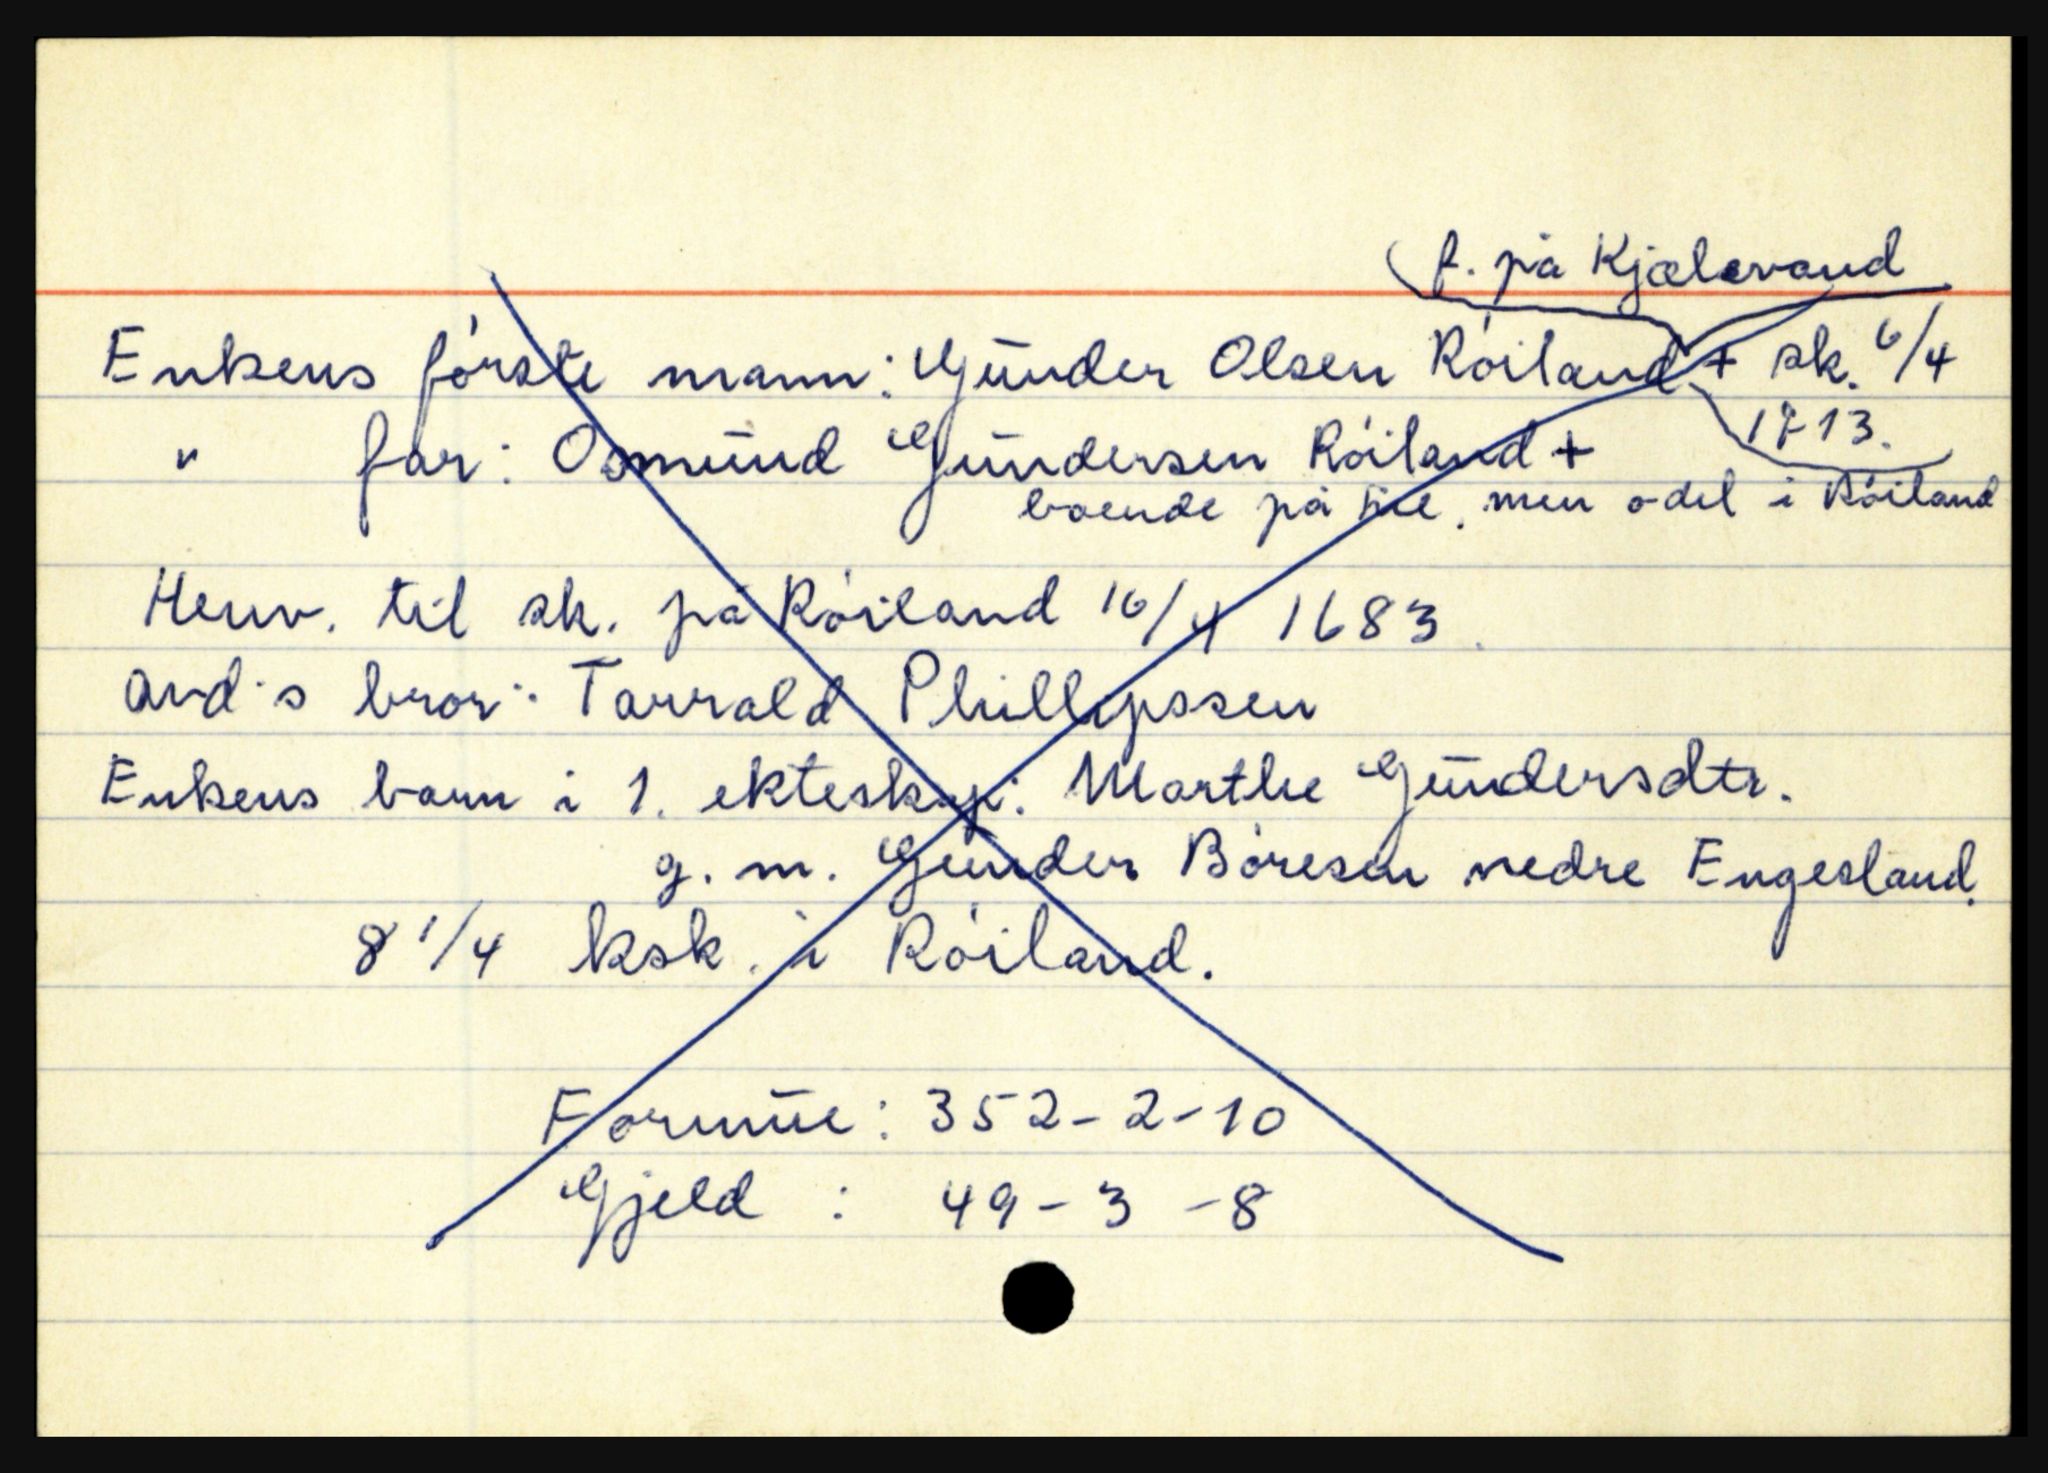 f. på Kjælevand
Enkens første mann: Gunder Olsen Røiland + sk. 6/4
1713.
" far: Osmund Gundersen Røiland +
boende på , men odel i Røiland
Henv. til sk. på Røiland 16/4 1683.
avd.s bror: Tarrald Phillipssen
Enkens barn i 1. ekteskap: Marthe Gundersdtr.
g. m. Gunder Børesen nedre Engesland.
8 1/4 ksk. i Røiland.
Formue: 352-2-10
Gjeld : 49-3-8